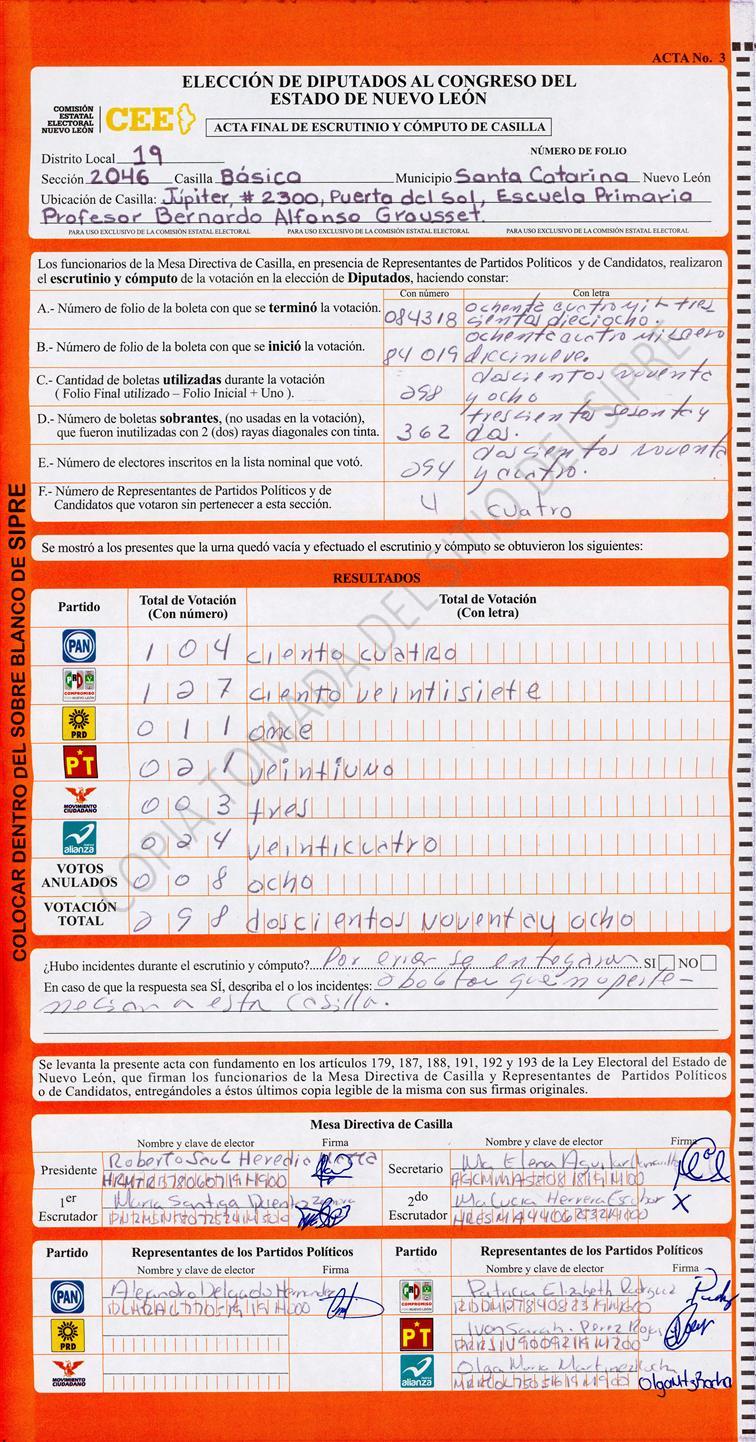 ACTA No. 3
ELECCIÓN DE DIPUTADOS AL CONGRESO DEL
ESTADO DE NUEVO LEÓN
COMISIÓN
ESTATAL
ELECTORAL
NUEVO LEÓN
CEE
ACTA FINAL DE ESCRUTINIO Y CÓMPUTO DE CASILLA
NÚMERO DE FOLIO
Distrito Local 19
Sección 2046 Casilla Básica Municipio Santa Catarina Nuevo León
Ubicación de Casilla: Júpiter, # 2300, Puerta del Sol, Escuela Primaria
Profesor Bernardo Alfonso Grousset.
PARA USO EXCLUSIVO DE LA COMISIÓN ESTATAL ELECTORAL PARA USO EXCLUSIVO DE LA COMISIÓN ESTATAL ELECTORAL PARA USO EXCLUSIVO DE LA COMISIÓN ESTATAL ELECTORAL
Los funcionarios de la Mesa Directiva de Casilla, en presencia de Representantes de Partidos Políticos y de Candidatos, realizaron
el escrutinio y cómputo de la votación en la elección de Diputados, haciendo constar:
Con número Con letra
A.- Número de folio de la boleta con que se terminó la votación. 084318 ochenta cuatro mil tres
cientos dieciocho.
B.- Número de folio de la boleta con que se inició la votación. 84019 ochenta cuatro mil cero
diecinueve.
C.- Cantidad de boletas utilizadas durante la votación
( Folio Final utilizado – Folio Inicial + Uno ). 298 doscientos noventa
y ocho
D.- Número de boletas sobrantes, (no usadas en la votación),
que fueron inutilizadas con 2 (dos) rayas diagonales con tinta. 362 trescientos sesenta y
dos.
E.- Número de electores inscritos en la lista nominal que votó. 294 doscientos noventa
y cuatro.
F.- Número de Representantes de Partidos Políticos y de
Candidatos que votaron sin pertenecer a esta sección. 4 cuatro
Se mostró a los presentes que la urna quedó vacía y efectuado el escrutinio y cómputo se obtuvieron los siguientes:
RESULTADOS
Partido Total de Votación (Con número) Total de Votación (Con letra)
PAN 104 ciento cuatro
PRD COMPROMISO 127 ciento veintisiete
PRD 011 once
PT 021 veintiuno
MOVIMIENTO CIUDADANO 003 tres
alianza 024 veinticuatro
VOTOS ANULADOS 008 ocho
VOTACIÓN TOTAL 298 doscientos noventa y ocho
¿Hubo incidentes durante el escrutinio y cómputo? Por error se entregaron SI NO
En caso de que la respuesta sea SÍ, describa el o los incidentes:
a esta casilla.
Se levanta la presente acta con fundamento en los artículos 179, 187, 188, 191, 192 y 193 de la Ley Electoral del Estado de
Nuevo León, que firman los funcionarios de la Mesa Directiva de Casilla y Representantes de Partidos Políticos
o de Candidatos, entregándoles a éstos últimos copia legible de la misma con sus firmas originales.
Mesa Directiva de Casilla
Nombre y clave de elector Firma Nombre y clave de elector Firma
Presidente Roberto Saul Heredia
Secretario Ma Elena Aguilar
1er Escrutador Maria Santiga
2do Escrutador Ma Lucia Herrera X
Partido Representantes de los Partidos Políticos Partido Representantes de los Partidos Políticos
Nombre y clave de elector Firma Nombre y clave de elector Firma
PAN Alejandro Delgado Hernandez
COMPROMISO Patricia Elizabeth Rodriguez
PRD
PT Ivon Sarah Perez Rojas
MOVIMIENTO CIUDADANO
alianza Olga Maria Martinez
COLOCAR DENTRO DEL SOBRE BLANCO DE SIPRE
COPIA TOMADA DEL SITIO DEL SIPRE